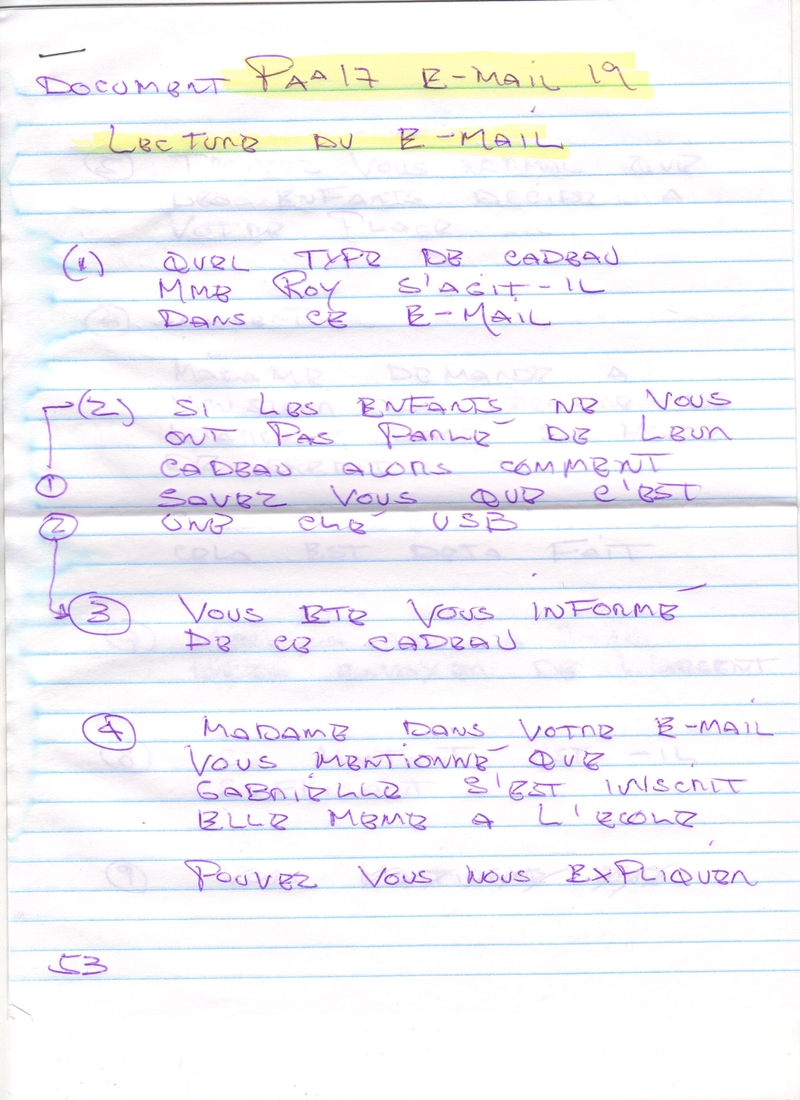 DOCUMENT PAA17 E-MAIL 19
LECTURE DU E-MAIL
(1) QUEL TYPE DE CADEAU
MME ROY S'AGIT-IL
DANS CE E-MAIL
(2) SI LES ENFANTS NE VOUS
ONT PAS PARLÉ DE LEUR
CADEAU ALORS COMMENT
① SAVEZ VOUS QUE C'EST
② UNE CLÉ USB
③ VOUS ETE VOUS INFORMÉ
DE CE CADEAU
④ MADAME DANS VOTRE E-MAIL
VOUS MENTIONNÉ QUE
GABRIELLE S'EST INSCRIT
ELLE MEME A L'ECOLE
POUVEZ VOUS NOUS EXPLIQUER
53